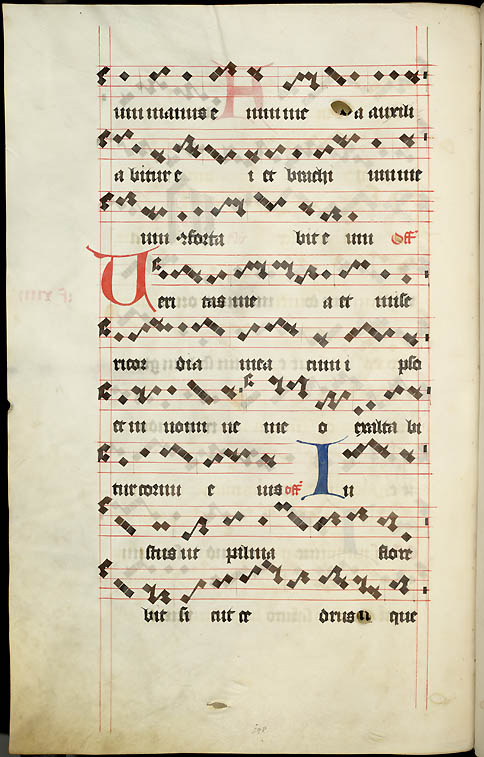 mmanus e nim me a a auxili
abitur e i et brachi um me
um ɔforta bit e um Off
Ueri tas me a et mise
ricor dia mea cum i pso
et in nomi ne me o exalta bi
tur cornu e ius off In
stus ut palma flore
bit si cut ce drus q que